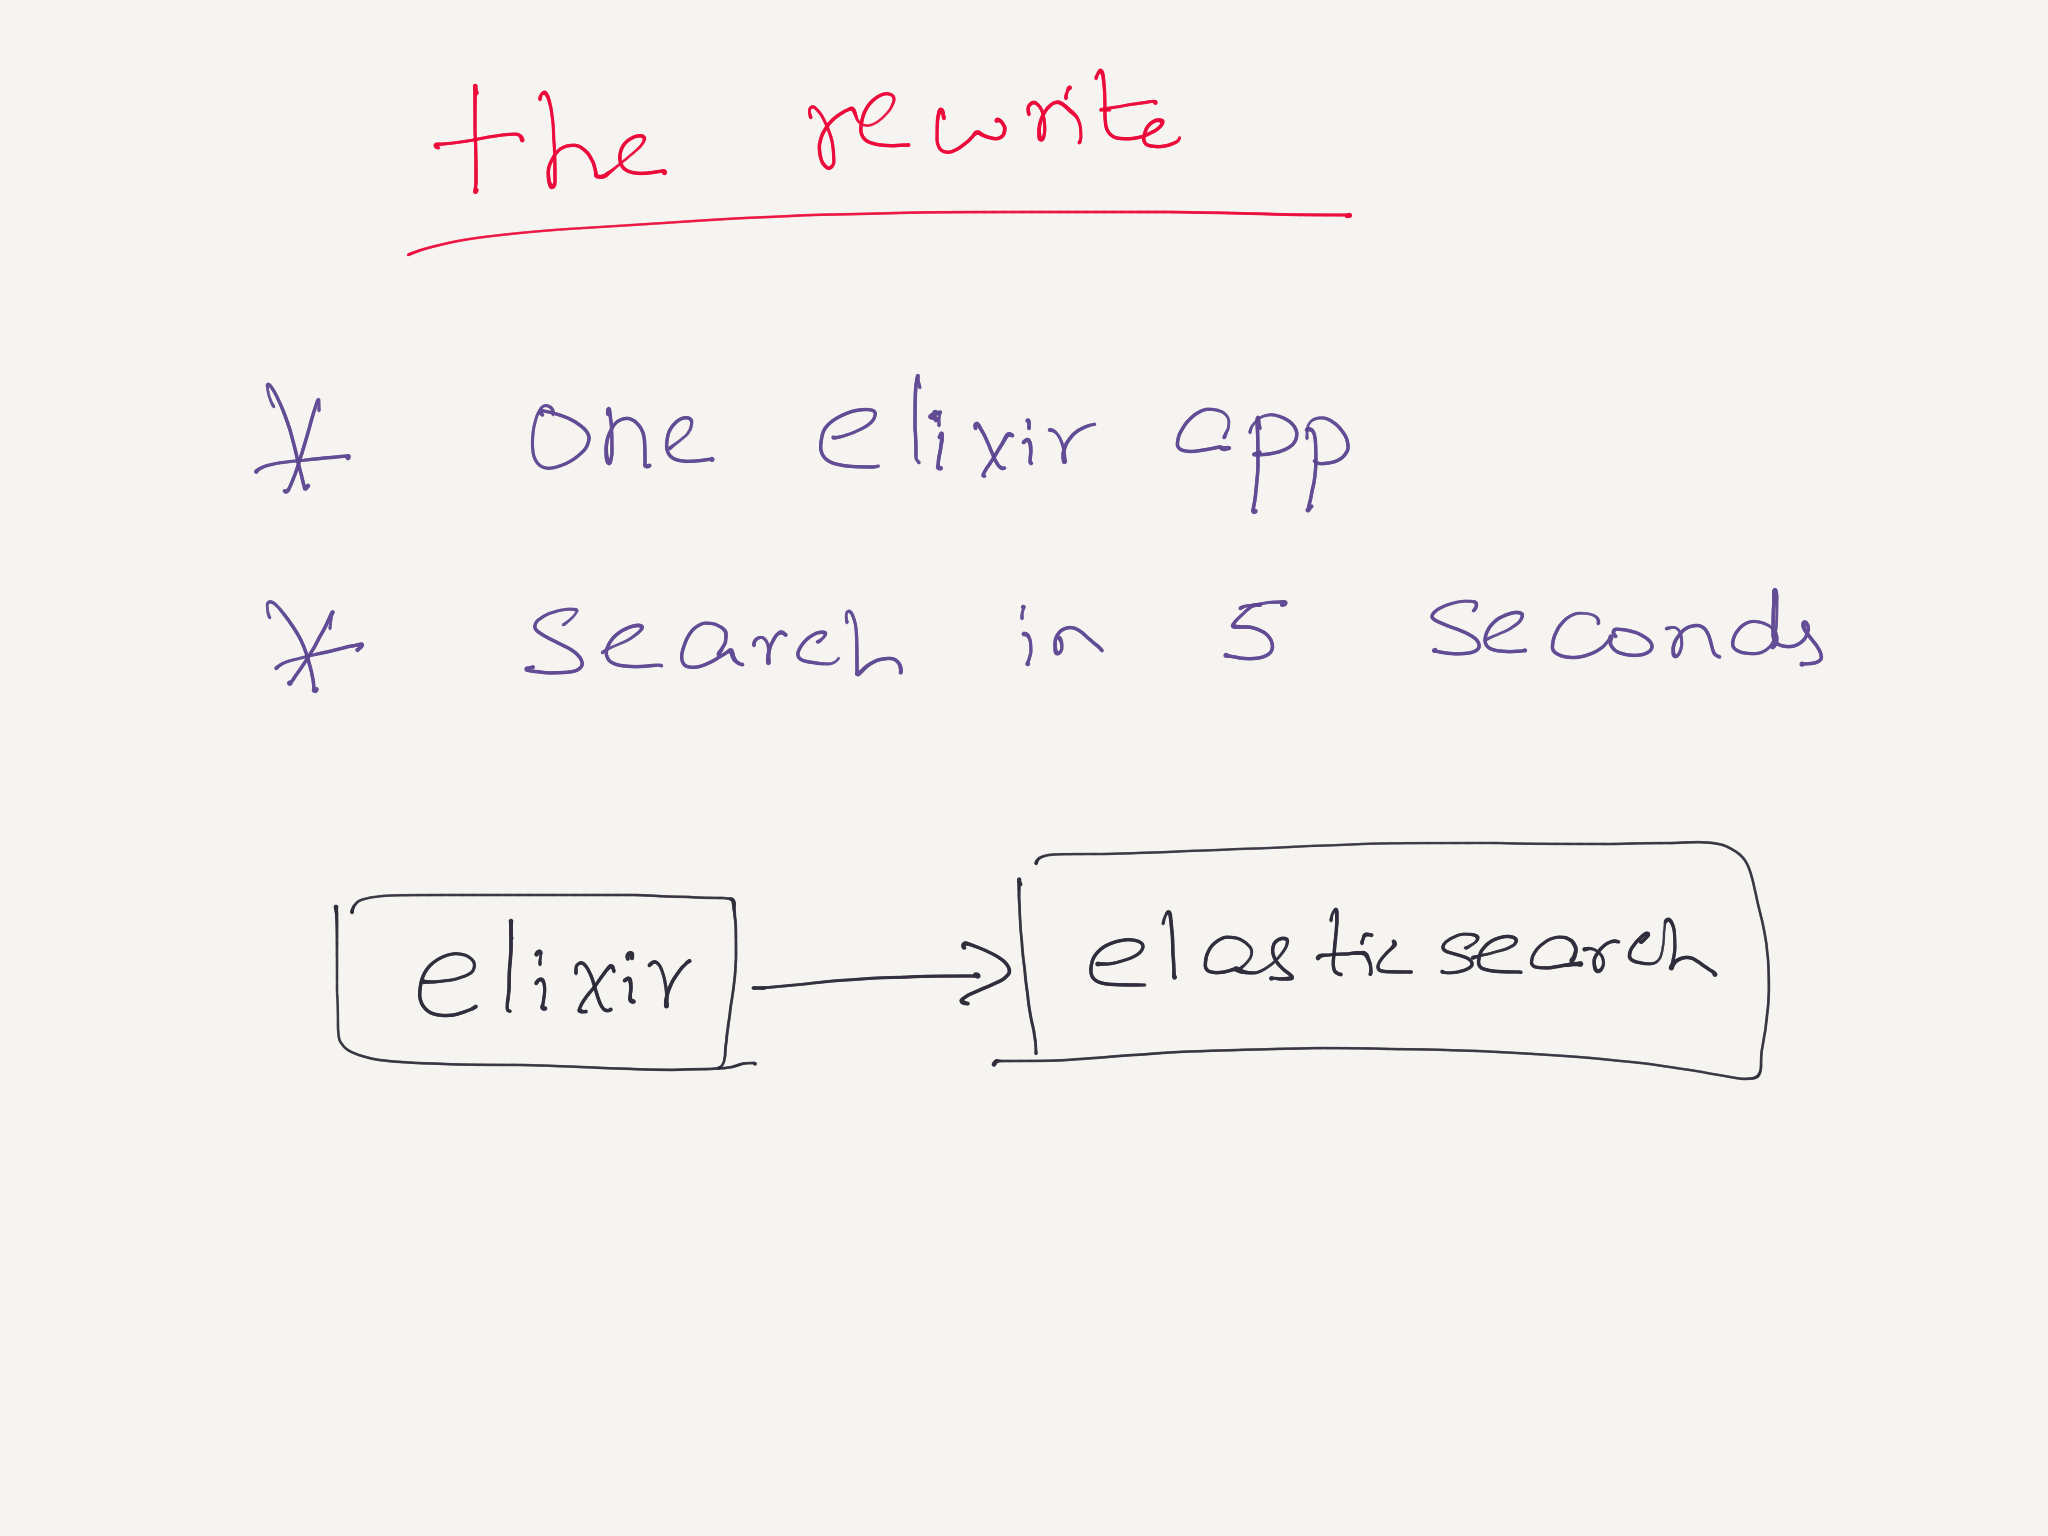 the rewrite
* one elixir app
* search in 5 seconds
elixir
elasticsearch